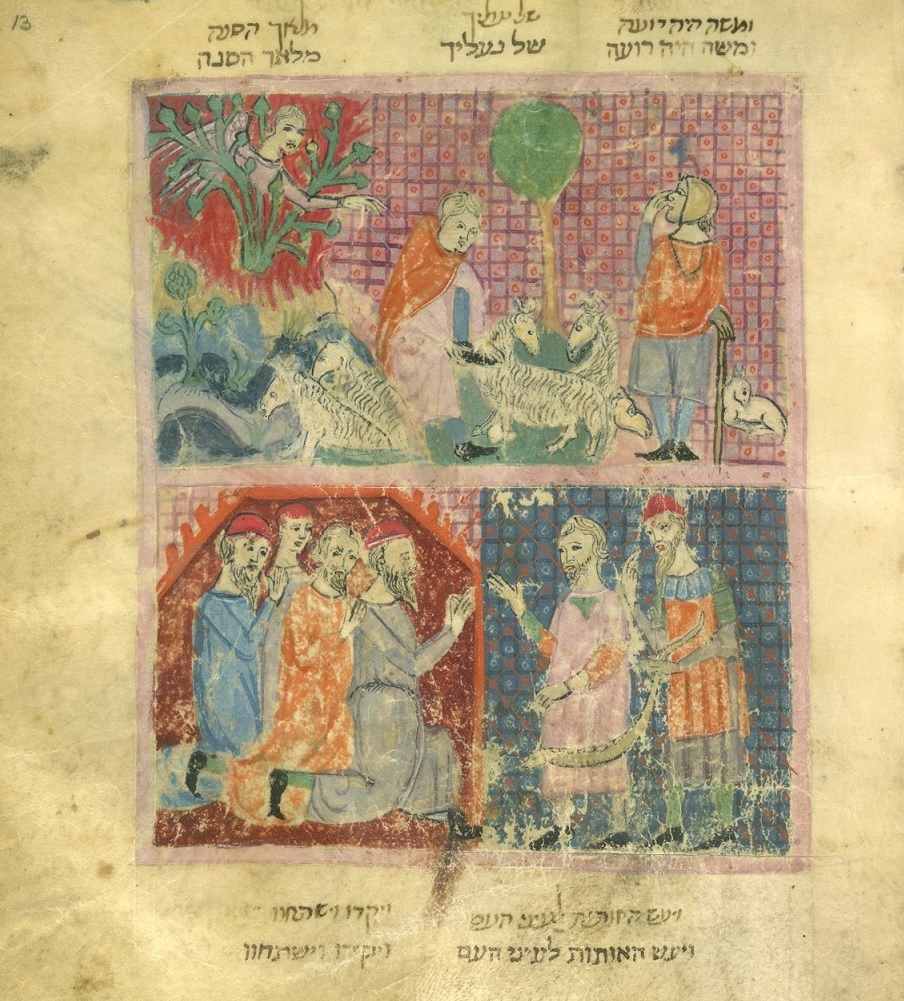 13
ומשה היה רועה
של נעליך
מלאך הסנה
ומשה היה רועה
של נעליך
מלאך הסנה
ויעש האותות לעיני העם
ויקדו וישתחוו
ויעש האותות לעיני העם
ויקידו וישתחוו